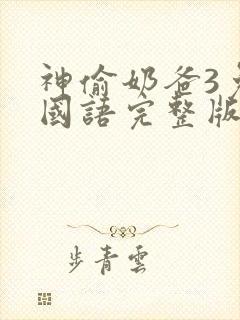 神偷奶爸3
國語完整版
步青雲